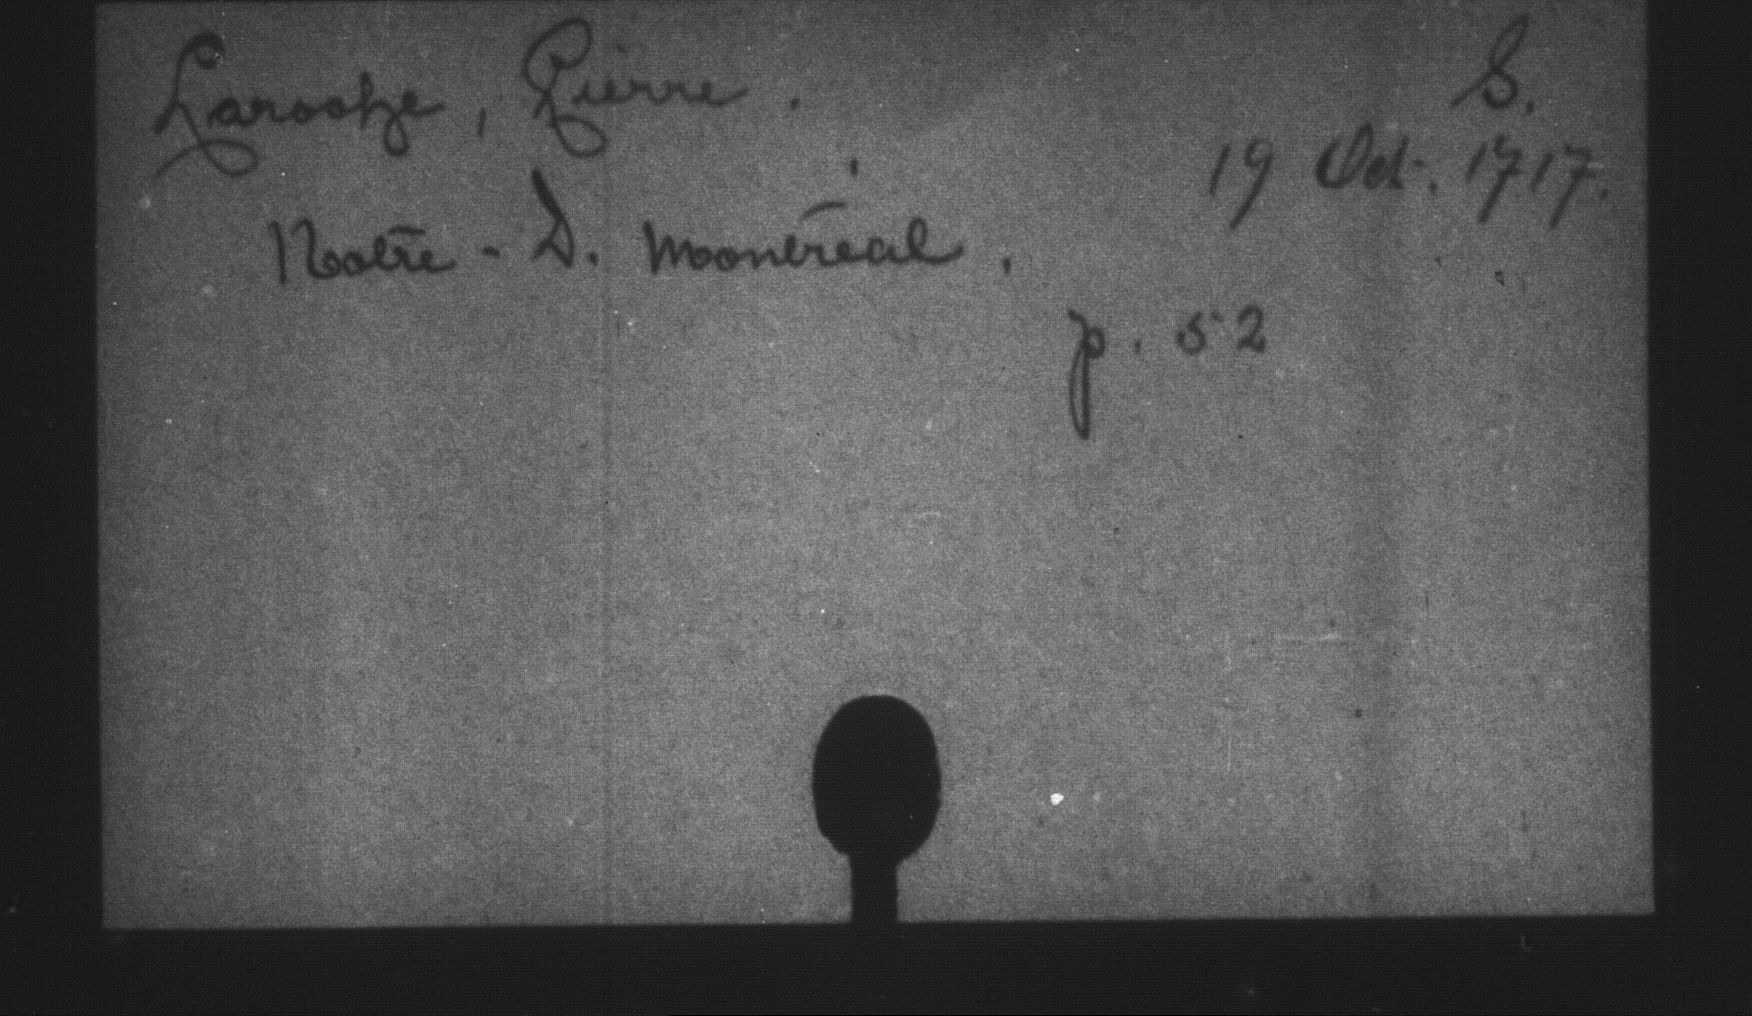 Laroche, Pierre. S.
19 Oct. 1717.
Notre-D. Montréal.
p. 52